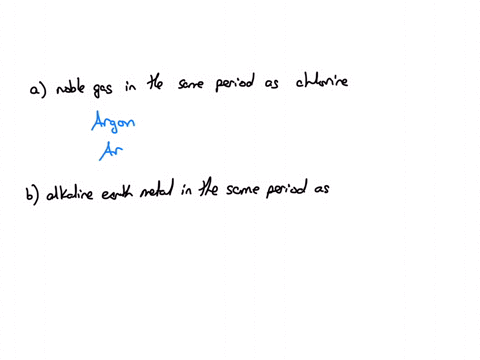 a) noble gas in the same period as chlorine
Argon
Ar
b) alkaline earth metal in the same period as